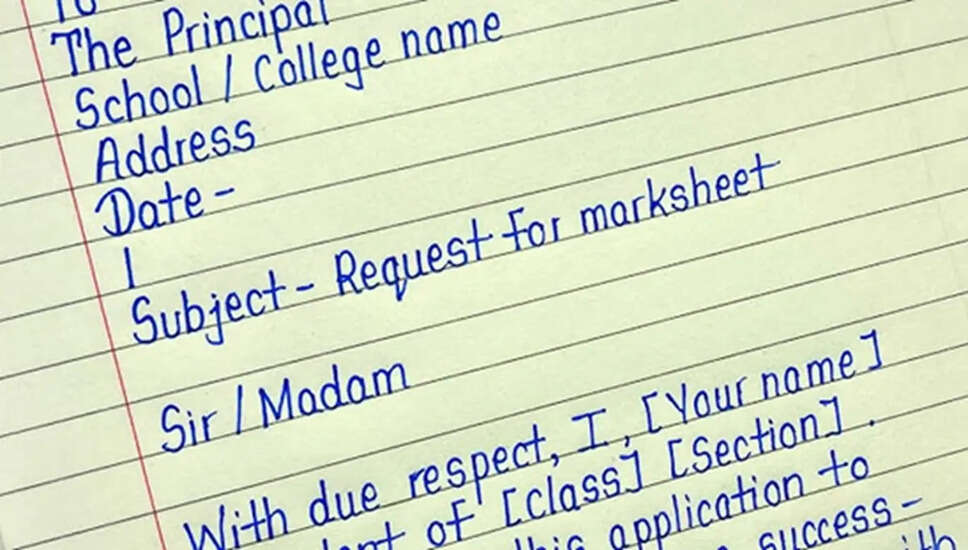 To
The Principal
School / College name
Address
Date -
|
Subject - Request for marksheet
Sir / Madam
With due respect, I, [Your name]
of [class] [Section].
this application to
success -